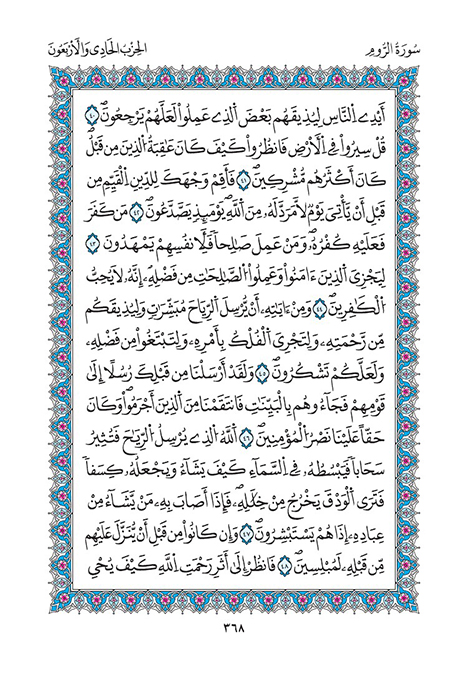 سُورَةُ الرُّومِ
الحِزْبُ الحَادِي وَالأَرْبَعُونَ
أَيْدِے اِ۬لنَّاسِ لِيُذِيقَهُم بَعْضَ اَ۬لذِے عَمِلُواْ لَعَلَّهُمْ يَرْجِعُونَۖ ٤٠
قُلْ سِيرُواْ فِے اِ۬لْأَرْضِ فَانظُرُواْ كَيْفَ كَانَ عَٰقِبَةُ اُ۬لذِينَ مِن قَبْلُۖ
كَانَ أَكْثَرُهُم مُّشْرِكِينَۖ ٤١ فَأَقِمْ وَجْهَكَ لِلدِّينِ اِ۬لْقَيِّمِ مِن
قَبْلِ أَنْ يَّأْتِيَ يَوْمٌ لَّا مَرَدَّ لَهُۥ مِنَ اَ۬للَّهِۖ يَوْمَئِذٍ يَصَّدَّعُونَۖ ٤٢ مَن كَفَرَ
فَعَلَيْهِ كُفْرُهُۥۖ وَمَنْ عَمِلَ صَٰلِحاً فَلِأَنفُسِهِمْ يَمْهَدُونَ ٤٣
لِيَجْزِيَ اَ۬لذِينَ ءَامَنُواْ وَعَمِلُواْ اُ۬لصَّٰلِحَٰتِ مِن فَضْلِهِۦۖ إِنَّهُۥ لَا يُحِبُّ
اُ۬لْكَٰفِرِينَۖ ٤٤ وَمِنْ ءَايَٰتِهِۦ أَنْ يُّرْسِلَ اَ۬لرِّيَاحَ مُبَشِّرَٰتٍ وَلِيُذِيقَكُم
مِّن رَّحْمَتِهِۦ وَلِتَجْرِيَ اَ۬لْفُلْكُ بِأَمْرِهِۦ وَلِتَبْتَغُواْ مِن فَضْلِهِۦ
وَلَعَلَّكُمْ تَشْكُرُونَۖ ٤٥ وَلَقَدْ أَرْسَلْنَا مِن قَبْلِكَ رُسُلًا إِلَىٰ
قَوْمِهِمْ فَجَآءُوهُم بِالْبَيِّنَٰتِ فَانتَقَمْنَا مِنَ اَ۬لذِينَ أَجْرَمُواْۖ وَكَانَ
حَقّاً عَلَيْنَا نَصْرُ اُ۬لْمُؤْمِنِينَۖ ٤٦ اَ۬للَّهُ اُ۬لذِے يُرْسِلُ اُ۬لرِّيَٰحَ فَتُثِيرُ
سَحَاباً فَيَبْسُطُهُۥ فِے اِ۬لسَّمَآءِ كَيْفَ يَشَآءُ وَيَجْعَلُهُۥ كِسَفاً
فَتَرَى اَ۬لْوَدْقَ يَخْرُجُ مِنْ خِلَٰلِهِۦۖ فَإِذَآ أَصَابَ بِهِۦ مَنْ يَّشَآءُ مِنْ
عِبَادِهِۦٓ إِذَا هُمْ يَسْتَبْشِرُونَۖ ٤٧ وَإِن كَانُواْ مِن قَبْلِ أَنْ يُّنَزَّلَ عَلَيْهِم
مِّن قَبْلِهِۦ لَمُبْلِسِينَۖ ٤٨ فَانظُرِ اِلَىٰٓ أَثَرِ رَحْمَتِ اِ۬للَّهِ كَيْفَ يُحْيِ
٣٦٨